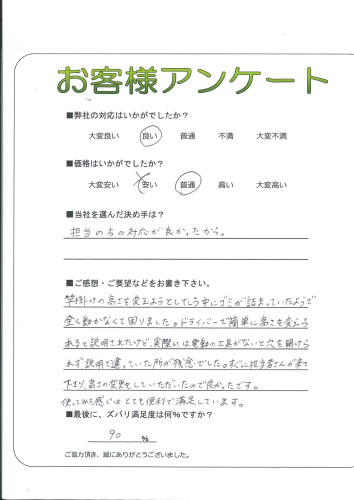 お客様アンケート
■弊社の対応はいかがでしたか？
大変良い 良い 普通 不満 大変不満
■価格はいかがでしたか？
大変安い 安い 普通 高い 大変高い
■当社を選んだ決め手は？
担当の方の対応が良かったから。
■ご感想・ご要望などをお書き下さい。
竿掛けの高さを変えようとしたら中にゴミが詰まっていたようで
全く動かなくて困りました。ドライバーで簡単に高さを変えら
れると説明されたけど、実際は電動の工具がないと穴を開けら
れず説明と違っていた所が残念でした。すぐに担当者さんが来て
下さり、高さの変更をしていただいたので良かったです。
使ってみた感じはとても便利で満足しています。
■最後に、ズバリ満足度は何%ですか？
90 %
ご協力頂き、誠にありがとうございました。